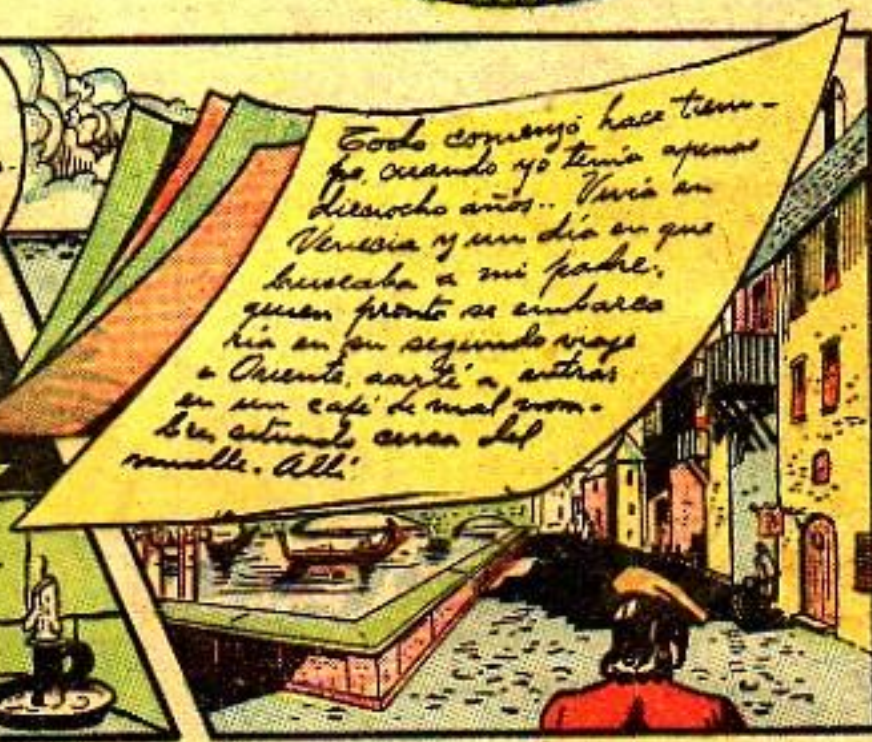 Todo comenzó hace tiem-
po, cuando yo tenía apenas
dieciocho años.. Vivía en
Venecia y un día en que
buscaba a mi padre,
quien pronto se embarca
ría en su segundo viaje
a Oriente, acerté a entrar
en un café de mal nom-
bre situado cerca del
muelle. Allí